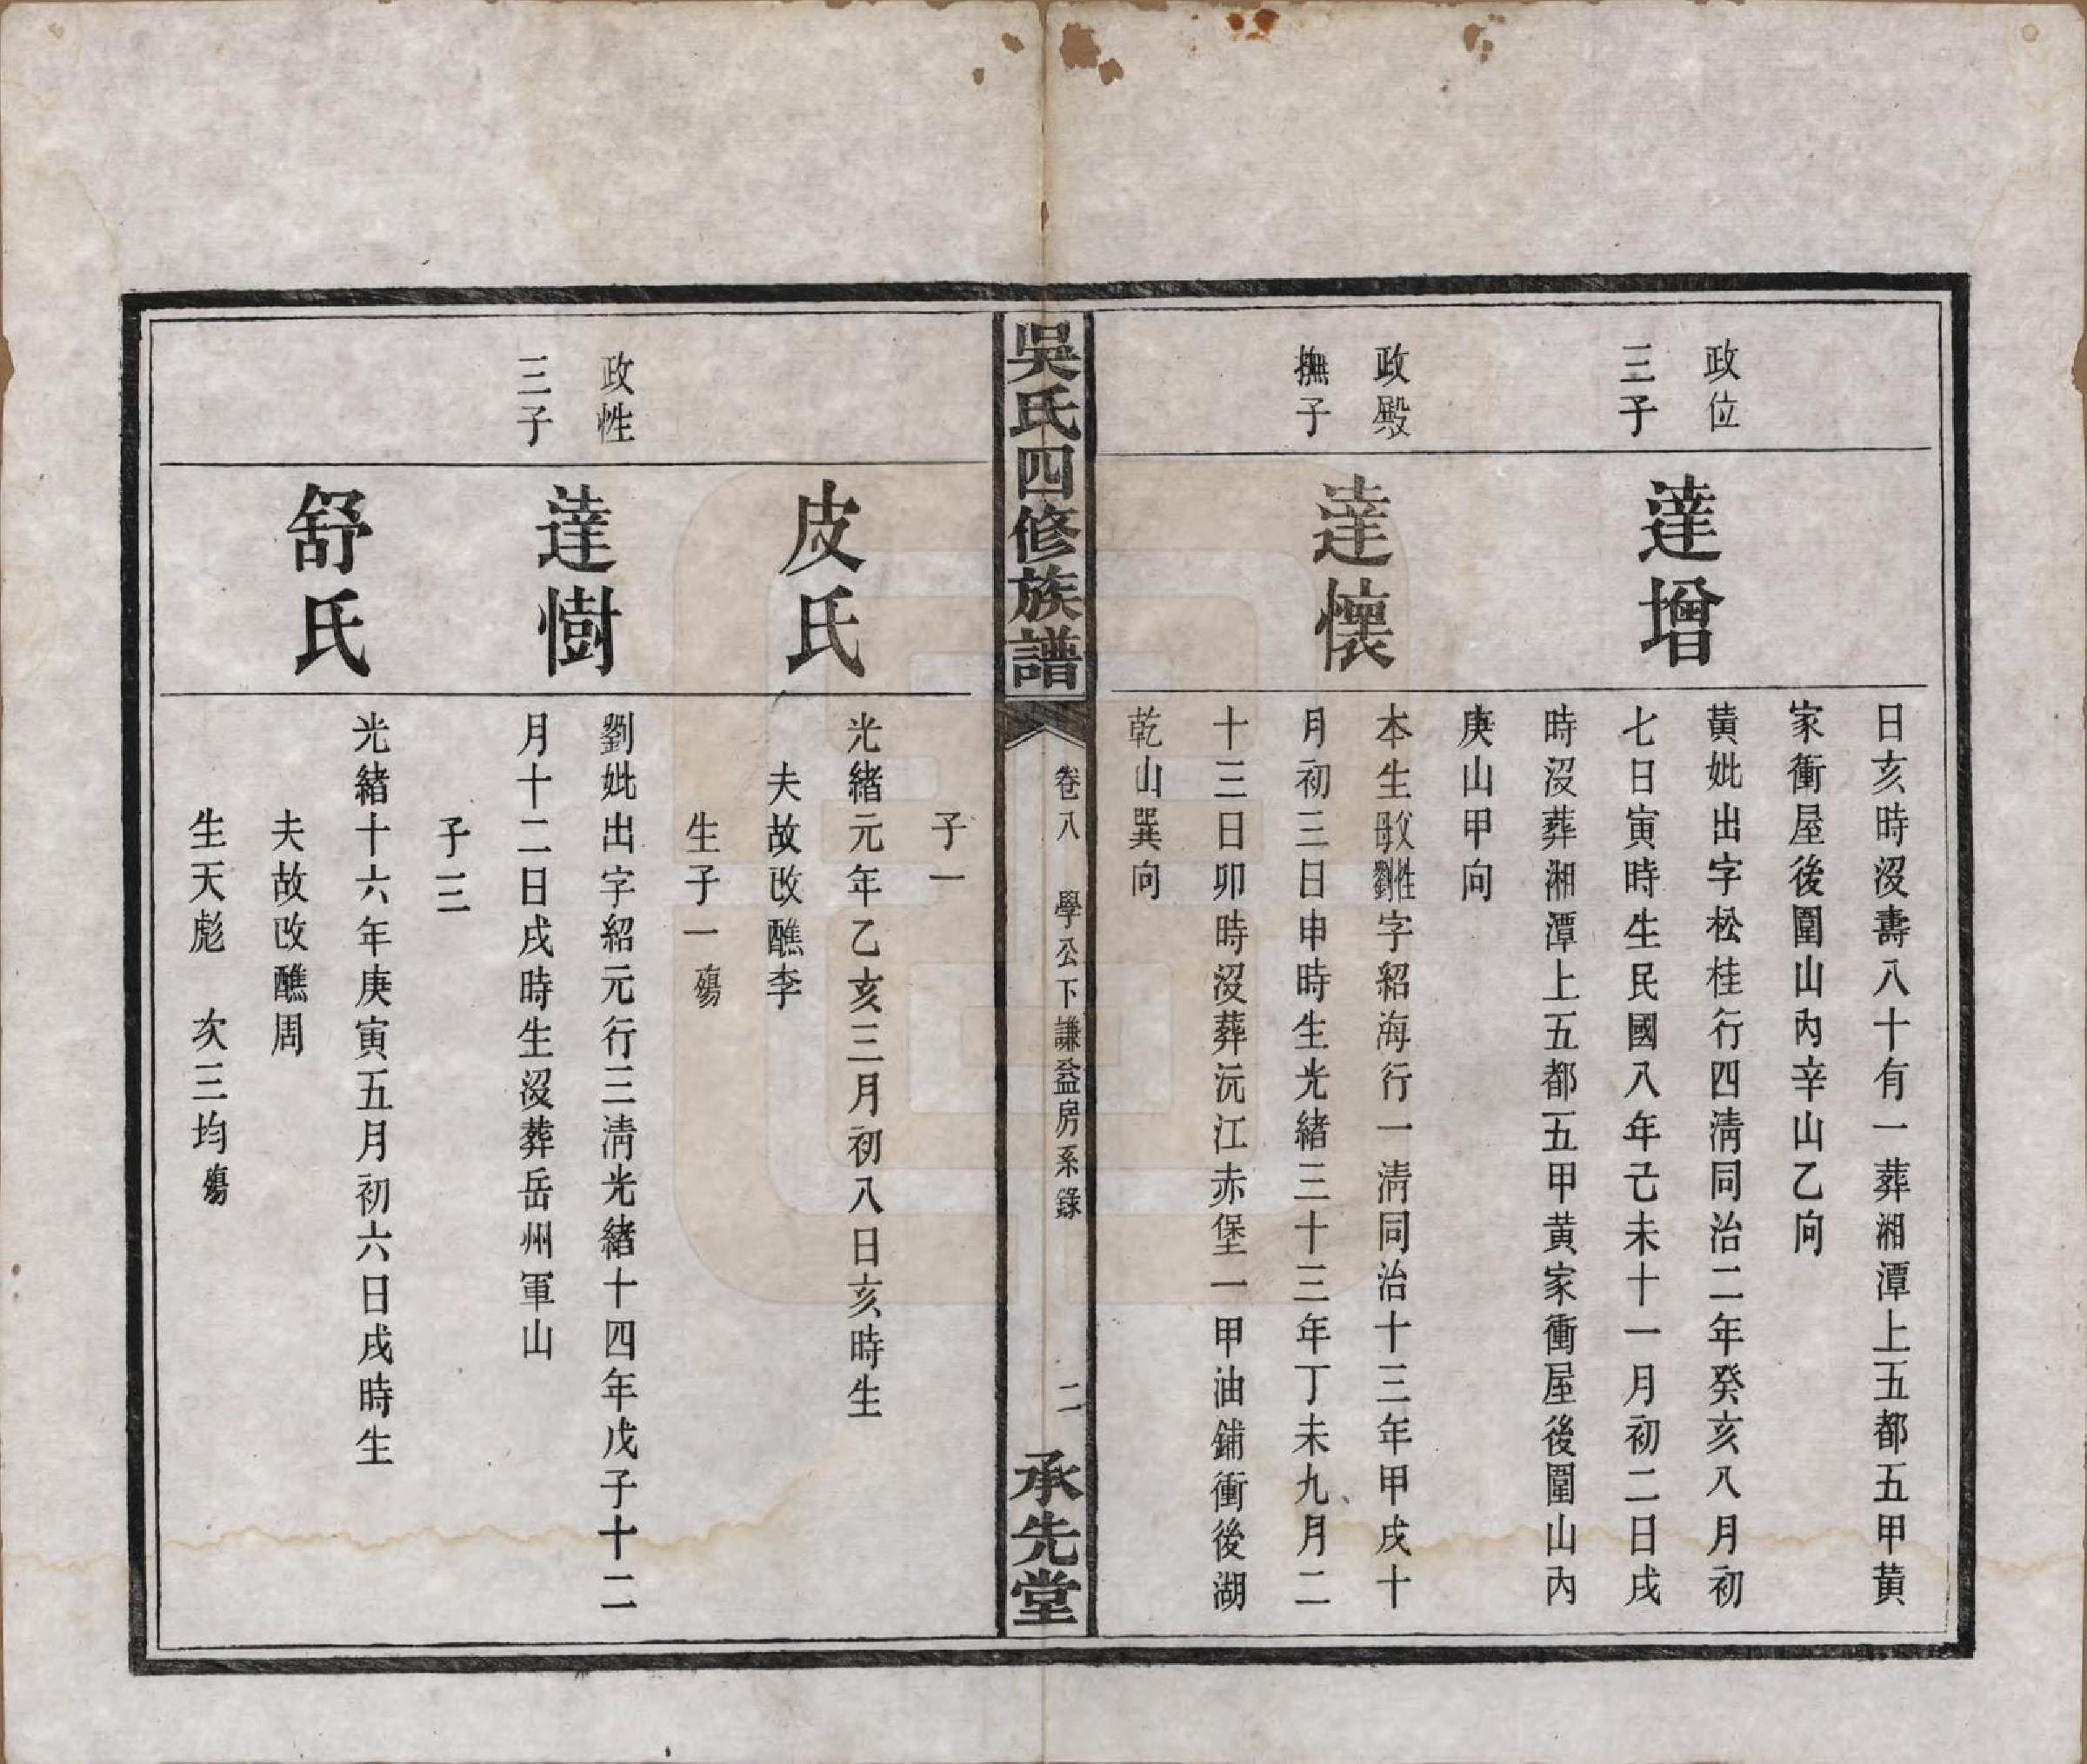 日亥時沒壽八十有一葬湘潭上五都五甲黃
家衝屋後圍山內辛山乙向
政位
三子
達增
黃妣出字松桂行四清同治二年癸亥八月初
七日寅時生民國八年己未十一月初二日戌
時沒葬湘潭上五都五甲黃家衝屋後圍山內
庚山甲向
政殿
撫子
達懷
本生父性母劉字紹海行一清同治十三年甲戌十
月初三日申時生光緒三十三年丁未九月二
十三日卯時沒葬沅江赤堡一甲油鋪衝後湖
乾山巽向
吳氏四修族譜
卷八　學公下謙益房系錄
二
承先堂
子一
皮氏
光緒元年乙亥三月初八日亥時生
夫故改醮李
生子一殤
政性
三子
達樹
劉妣出字紹元行三清光緒十四年戊子十二
月十二日戌時生沒葬岳州軍山
子三
舒氏
光緒十六年庚寅五月初六日戌時生
夫故改醮周
生天彪　次三均殤